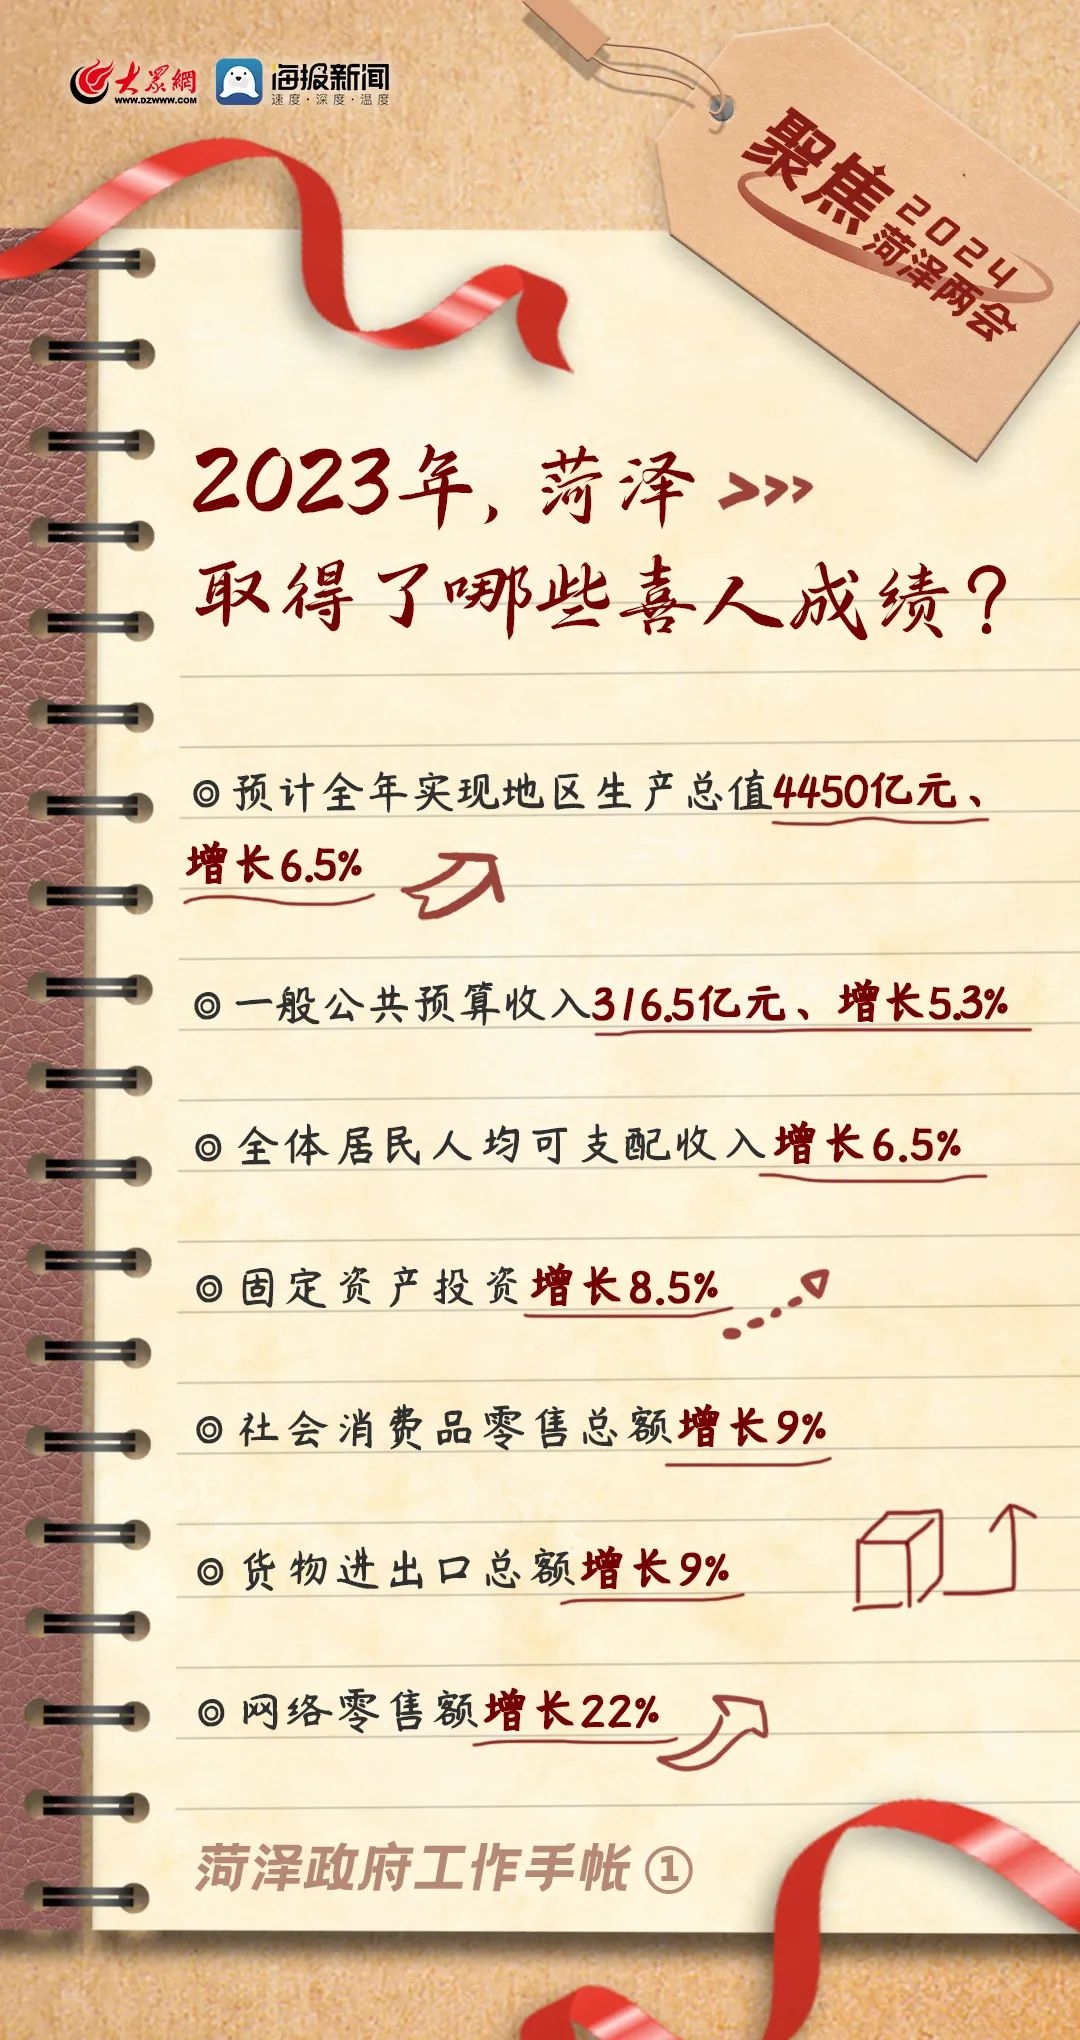 大众網
WWW.DZWWW.COM
海报新闻
速度·深度·温度
聚焦
2024
菏泽两会
2023年，菏泽 >>>
取得了哪些喜人成绩？
◎预计全年实现地区生产总值4450亿元、
增长6.5%
◎一般公共预算收入316.5亿元、增长5.3%
◎全体居民人均可支配收入增长6.5%
◎固定资产投资增长8.5%
◎社会消费品零售总额增长9%
◎货物进出口总额增长9%
◎网络零售额增长22%
菏泽政府工作手帐①